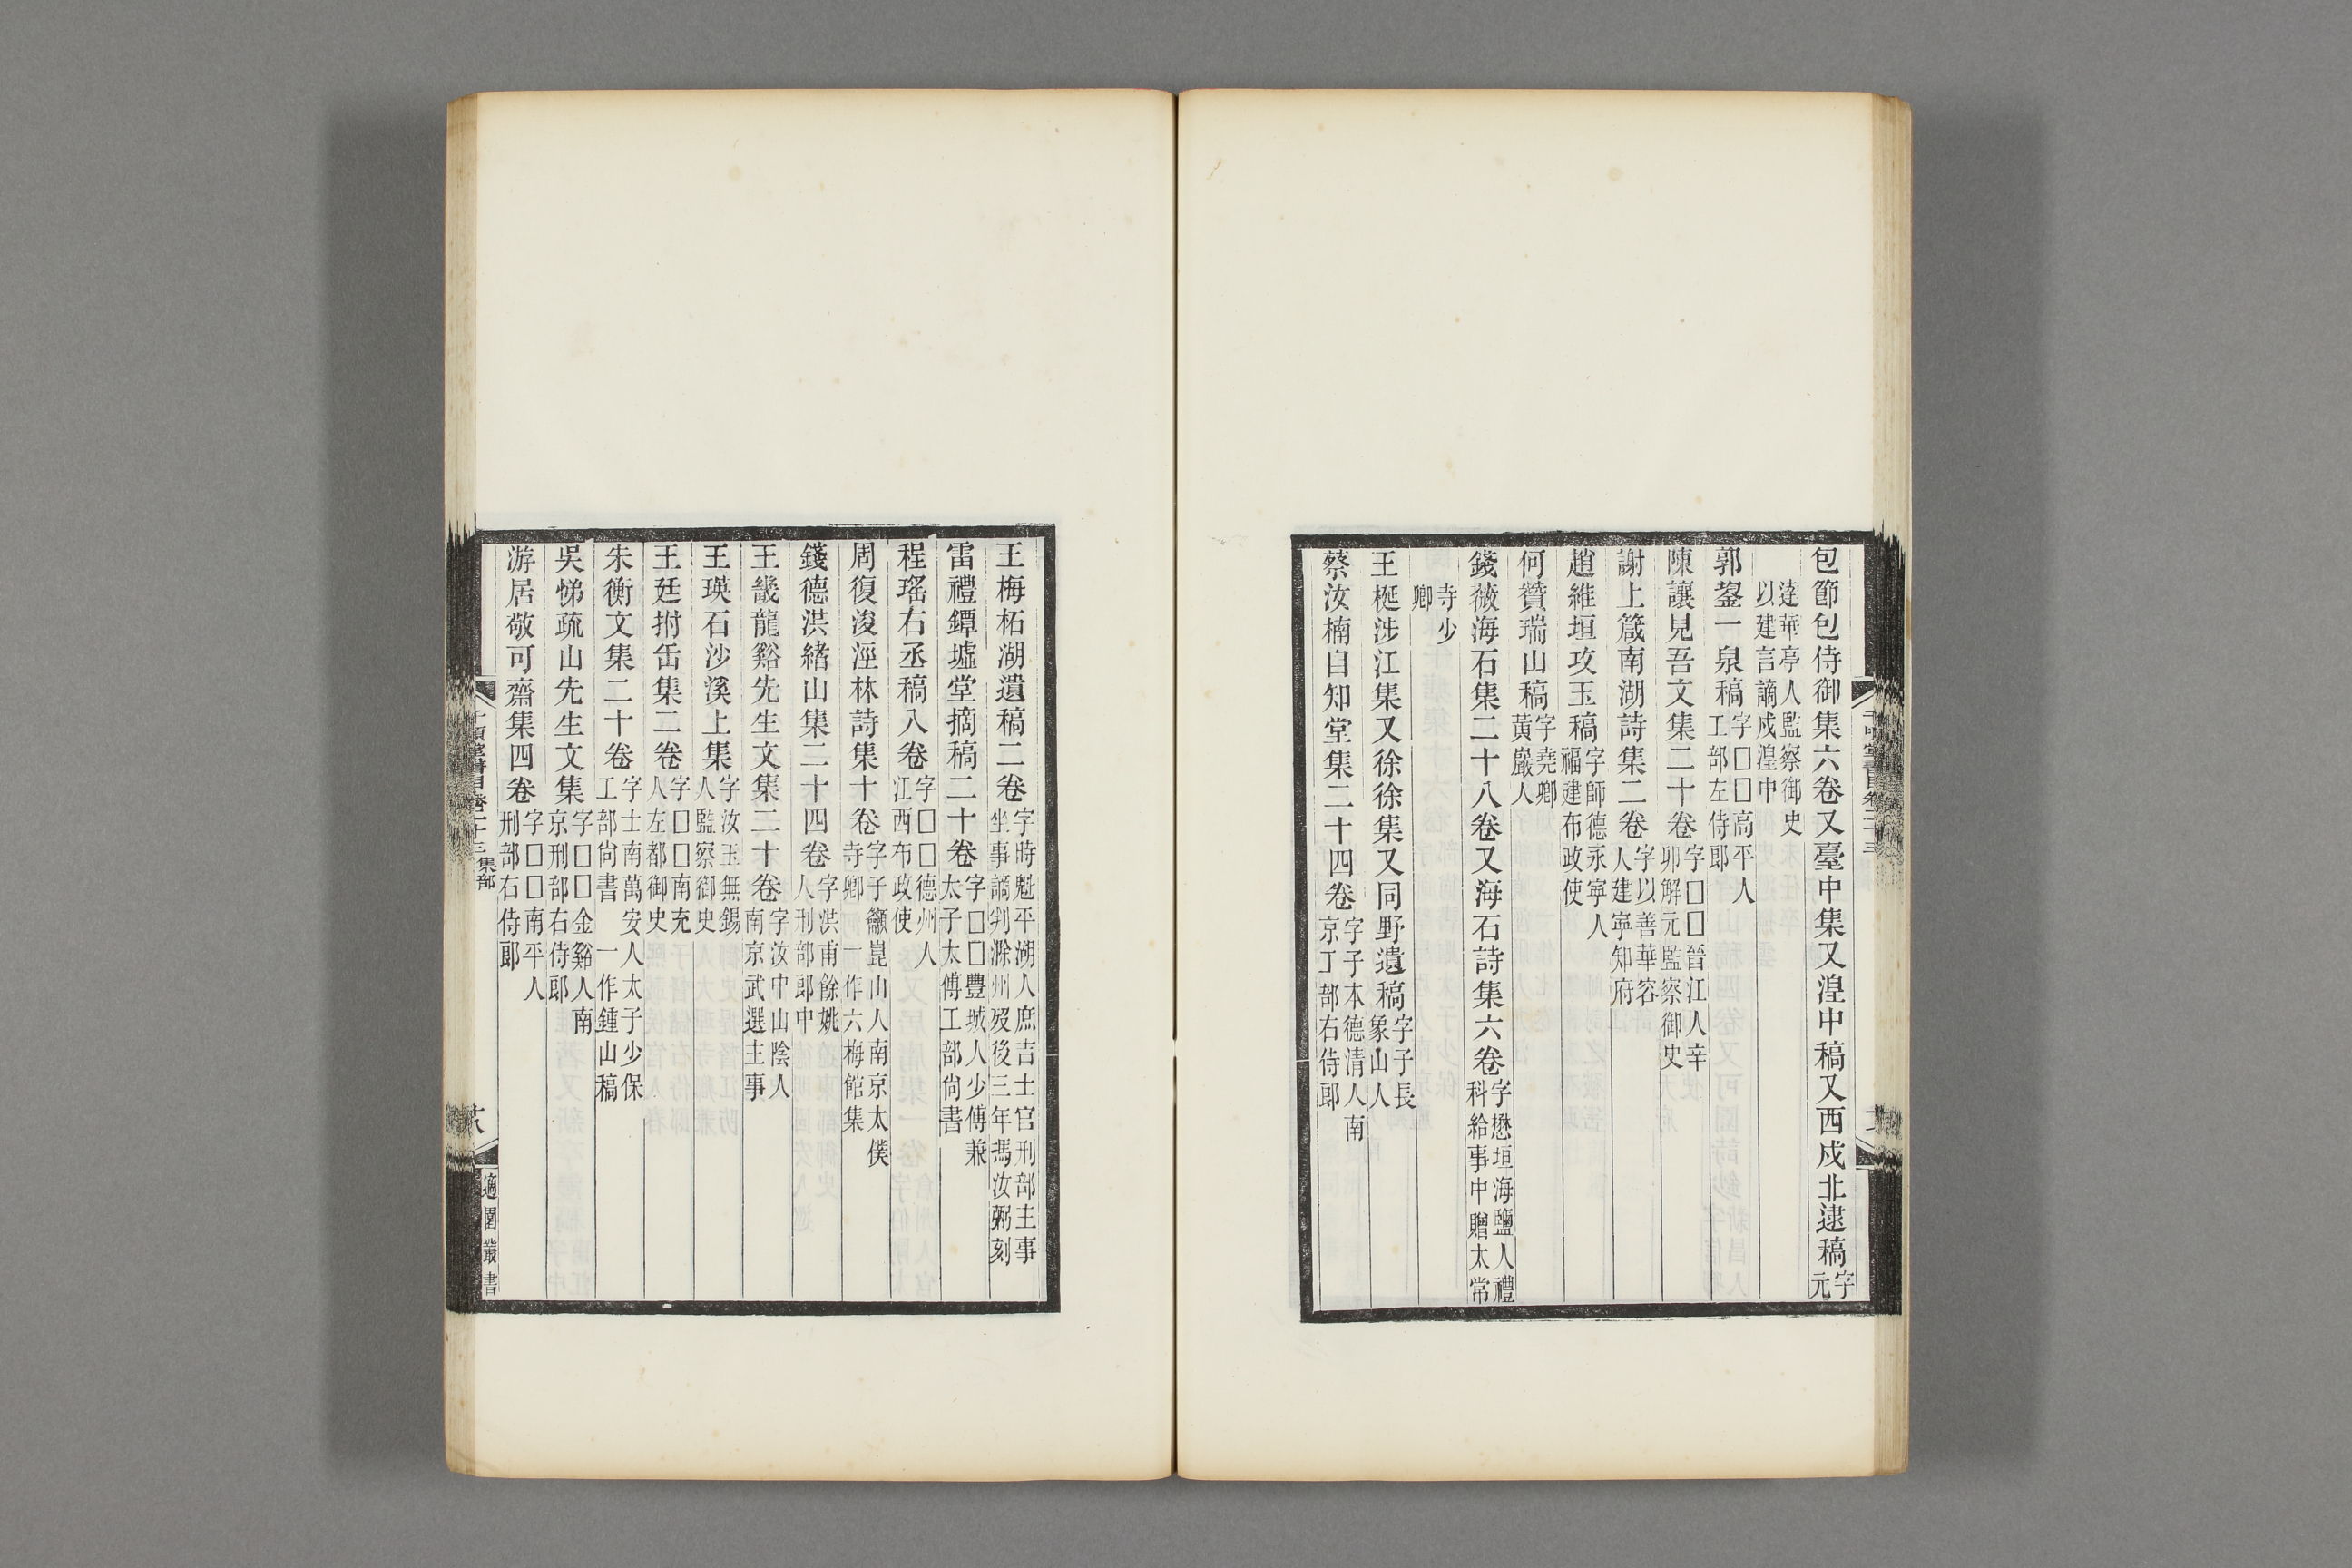 包節包侍御集六卷又臺中集又湟中稿又西戍北逮稿字元
達華亭人監察御史以建言謫戍湟中
郭鋆一泉稿字□□高平人工部左侍郎
陳讓見吾文集二十卷字□□晉江人辛卯解元監察御史
謝上箴南湖詩集二卷字以善華容人建寧知府
趙維垣攻玉稿字師德永寧人福建布政使
何贊瑞山稿字堯卿黃巖人
錢薇海石集二十八卷又海石詩集六卷字懋垣海鹽人禮科給事中贈太常
寺少卿
王梴涉江集又徐徐集又同野遺稿字子長象山人
蔡汝楠自知堂集二十四卷字子木德清人南京工部右侍郎
千頃堂書目卷二十三
王梅柘湖遺稿二卷字時魁平湖人庶吉士官刑部主事坐事謫判滁州歿後三年馮汝弼刻
雷禮鐔墟堂摘稿二十卷字□□豐城人少傅兼太子太傅工部尚書
程瑤右丞稿八卷字□□德州人江西布政使
周復浚涇林詩集十卷字子籲崑山人南京太僕寺卿 一作六梅館集
錢德洪緒山集二十四卷字洪甫餘姚人刑部郎中
王畿龍谿先生文集二十卷字汝中山陰人南京武選主事
王瑛石沙溪上集字汝玉無錫人監察御史
王廷拊缶集二卷字□□南充人左都御史
朱衡文集二十卷字士南萬安人太子少保工部尚書 一作鍾山稿
吳悌疏山先生文集字□□金谿人南京刑部右侍郎
游居敬可齋集四卷字□□南平人刑部右侍郎
千頃堂書目卷二十三 集部
適園叢書